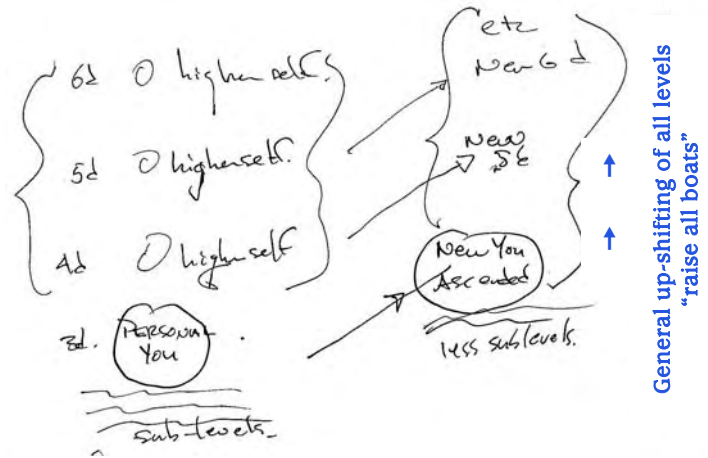 6d O higher self.
5d O higherself.
4d O higherself
3d. PERSONAL
YOU
sub-levels.
etc
New 6 d
New
5d
New You
Ascended
less sublevels.
General up-shifting of all levels
“raise all boats”